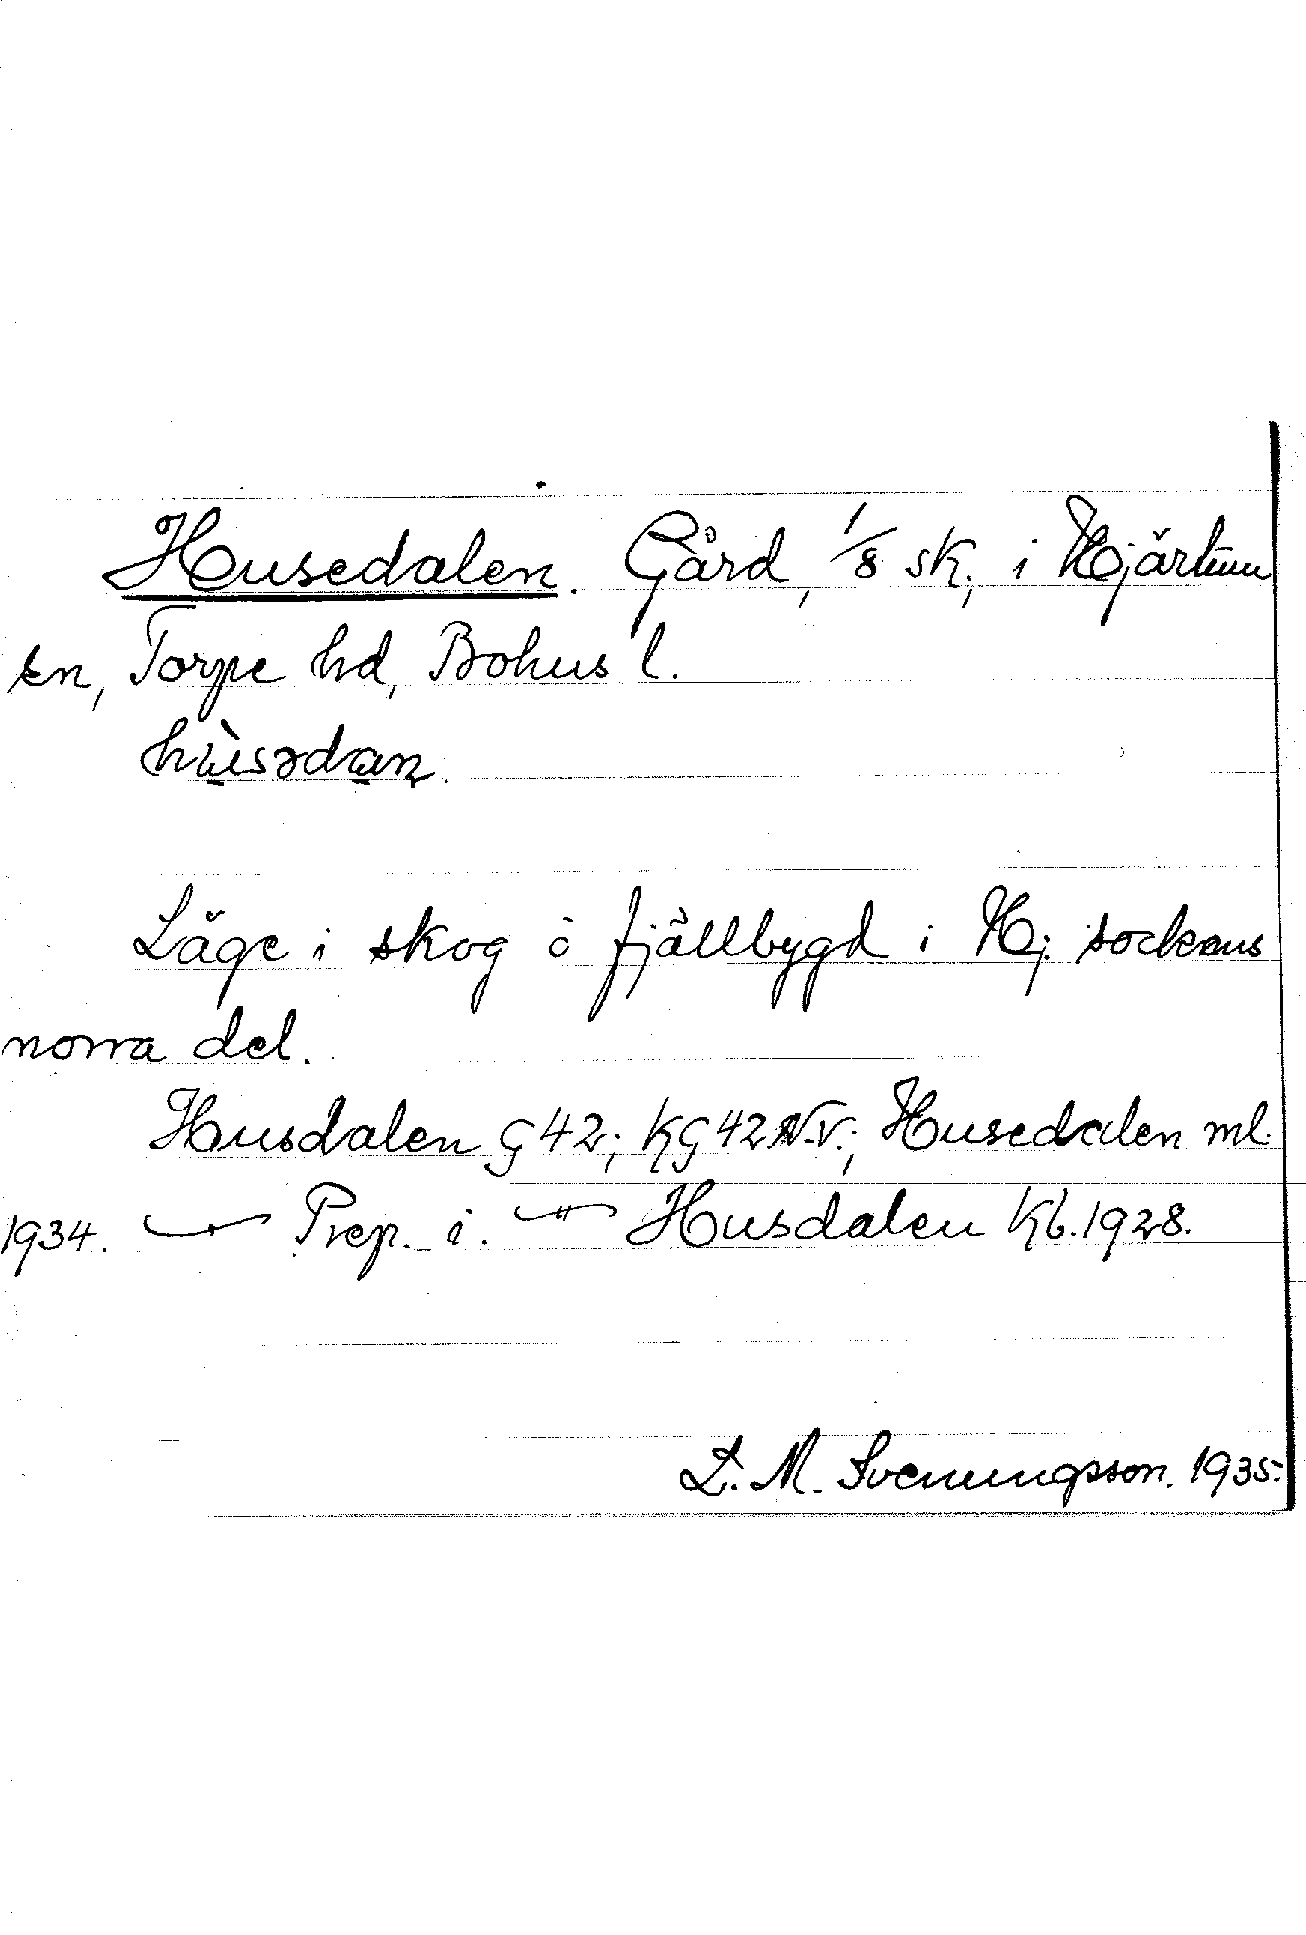 Husedalen. Gård, 1/8 sk., i Hjärtum
sn, Torpe hd, Bohus l.
hùsədan.
Läge i skog o fjällbygd i Hj. sockens
norra del.
Husdalen G 42; KG 42 N.V.; Husedalen ml.
1934. — Prep. i. — " — Husdalen Kb. 1928.
L. M. Svenungsson. 1935.